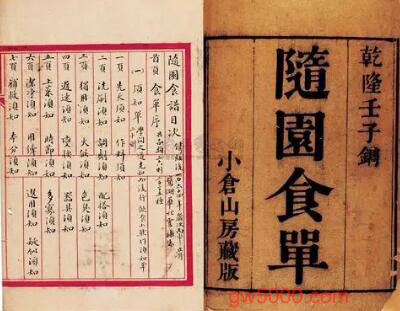 乾隆壬子鐫
隨園食單
小倉山房藏版
隨園食譜目次
首頁 食單序
(一) 須知單
一頁 先天須知 作料須知
二頁 洗刷須知 調劑須知 配搭須知
三頁 獨用須知 火候須知 色臭須知
四頁 遲速須知 變換須知 器具須知
五頁 上菜須知 時節須知 多寡須知
六頁 潔淨須知 用縴須知 選用須知 疑似須知
七頁 補救須知 本分須知
gw5000.com